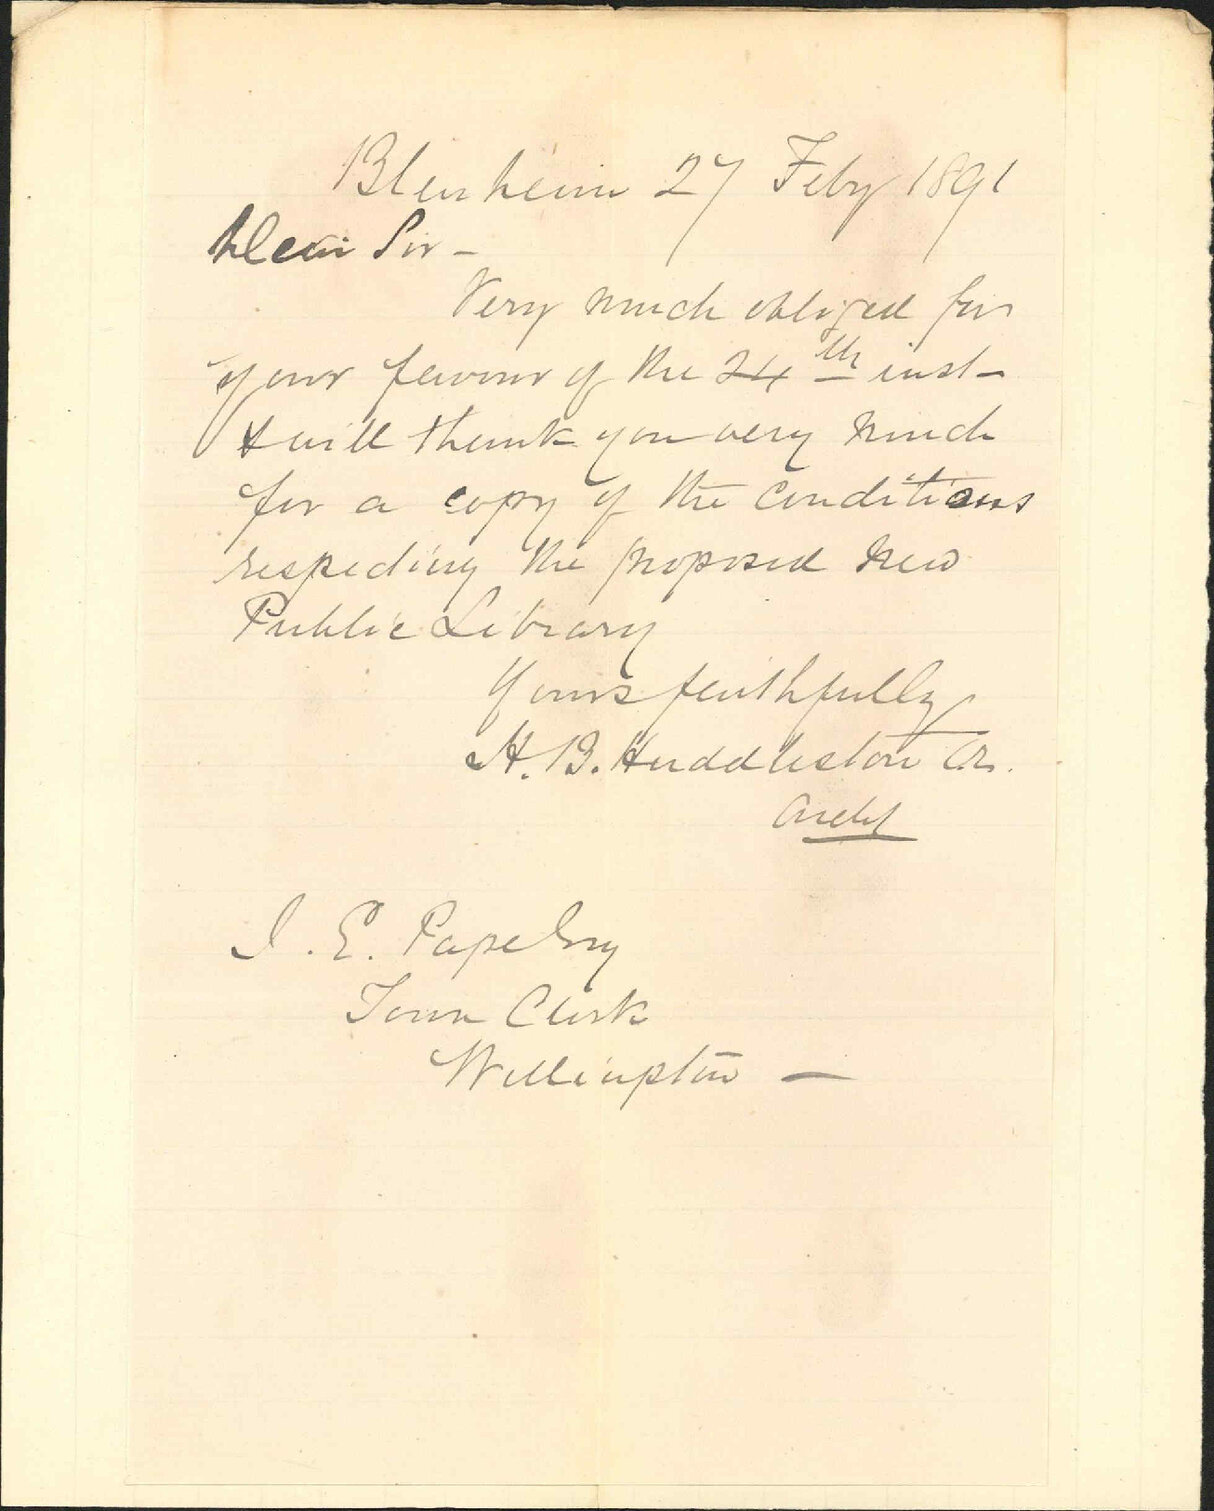 Blenheim 27 Feby 1891
Dear Sir -
Very much obliged for
your favour of the 24th inst -
& will thank you very much
for a copy of the conditions
respecting the proposed new
Public Library
Yours faithfully
H. B. Huddleston
Archt
J. E. Page Esq
Town Clerk
Wellington —